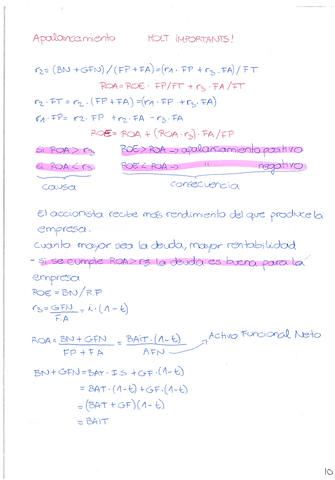 Apalancamiento MOLT IMPORTANTS!
r2=(BN+GFN)/(FP+FA)=(r1·FP+r3·FA)/FT
ROA=ROE·FP/FT+r3·FA/FT
r2·FT=r2·(FP+FA)=(r1·FP+r3·FA)
r1·FP=r2·FP+r2·FA-r3·FA
ROE=ROA+(ROA-r3)·FA/FP
si ROA>r3 ROE>ROA→apalancamiento positivo
si ROA<r3 ROE<ROA→ " negativo
causa consecuencia
El accionista recibe más rendimiento del que produce la
empresa.
Cuanto mayor sea la deuda, mayor rentabilidad
- si se cumple ROA>r3 la deuda es buena para la
empresa
ROE=BN/R.P
r3=GFN/FA=i·(1-t)
ROA=BN+GFN/FP+FA=BAIT·(1-t)/AFN → Activo Funcional Neto
BN+GFN=BAT-I.S+GF·(1-t)
=BAT·(1-t)+GF·(1-t)
=(BAT+GF)(1-t)
=BAIT
10